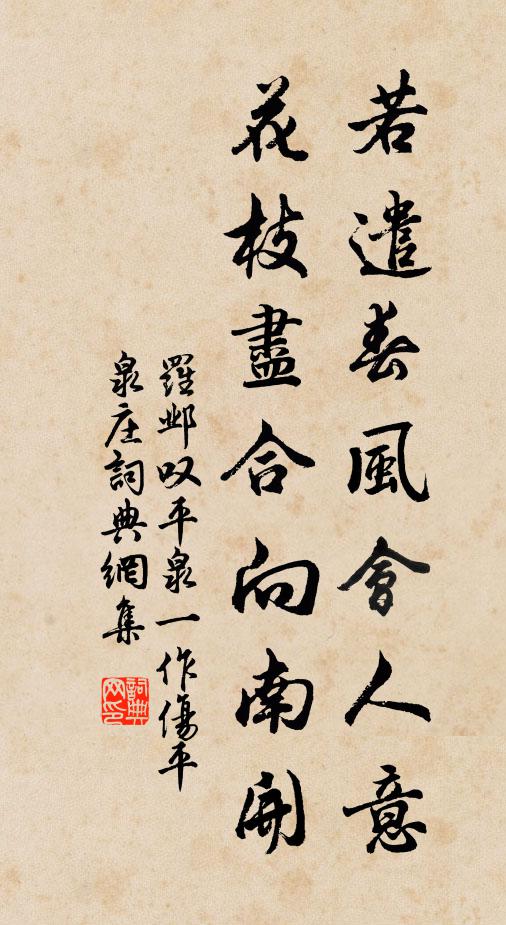 若遣春風會人意
花枝盡合向南開
羅鄴叹平泉一作傷平
泉庄詞典網集
詞典网印